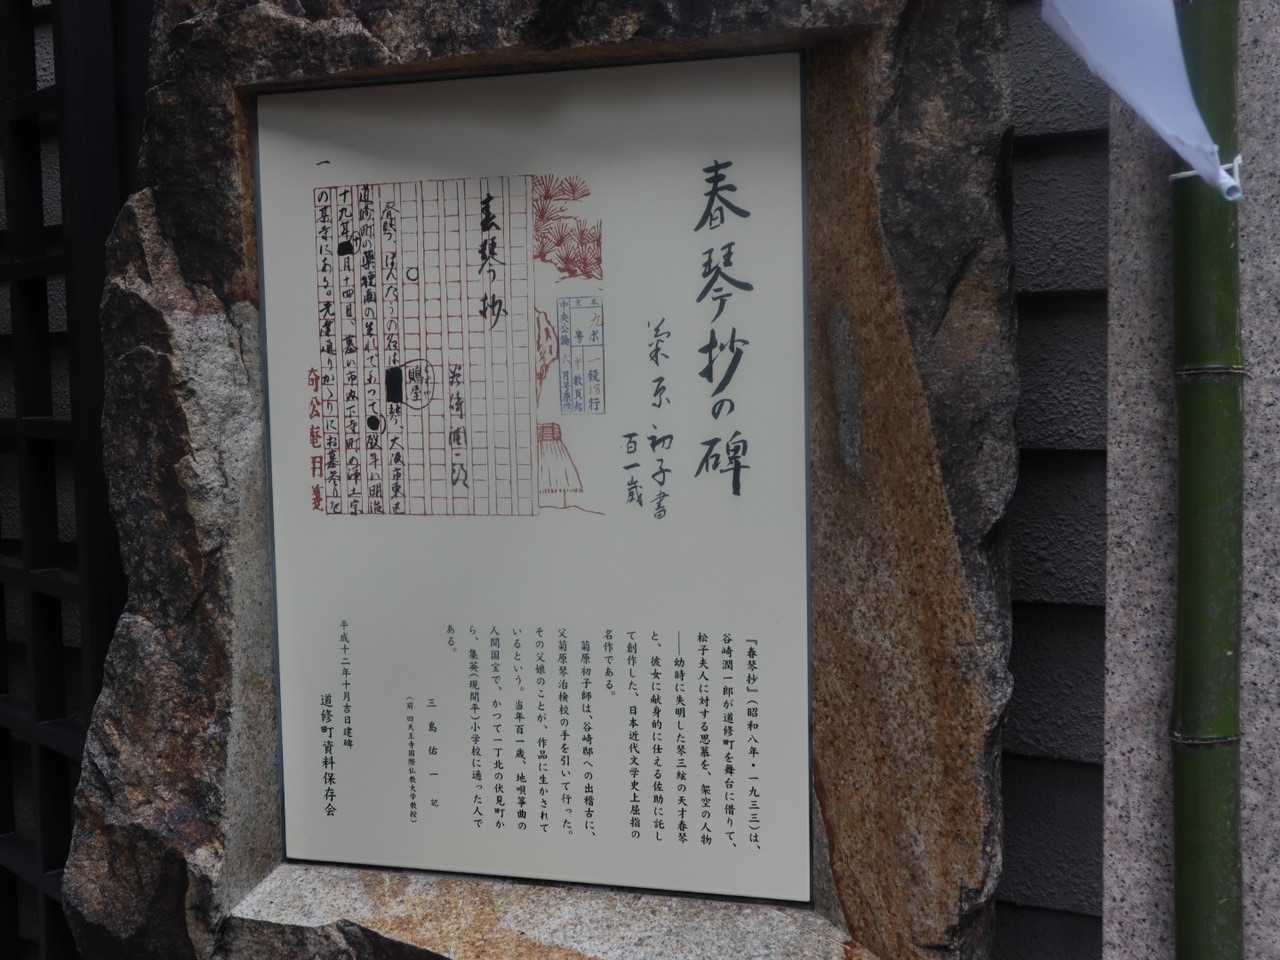 春琴抄の碑
菊原初子書
百一歳
春琴抄
谷崎潤一郎
春琴、ほんたうの名は
鵙屋
琴、大阪市東区
道修町の薬種商の生れで
歿年は明治
十九年
月十四日、墓は市内下寺町の浄土宗
の某寺にある。先達通りかゝりにお墓参りを
一
『春琴抄』(昭和八年・一九三三)は、
谷崎潤一郎が道修町を舞台に借りて、
松子夫人に対する思慕を、架空の人物
――幼時に失明した琴三絃の天才春琴
と、彼女に献身的に仕える佐助に託し
て創作した、日本近代文学史上屈指の
名作である。
菊原初子師は、谷崎邸への出稽古に、
父菊原琴治検校の手を引いて行った。
その父娘のことが、作品に生かされて
いるという。当年百一歳、地唄箏曲の
人間国宝で、かつて一丁北の伏見町か
ら、集英(現開平)小学校に通った人で
ある。
三島佑一 記
(前 四天王寺国際仏教大学教授)
平成十二年十月吉日建碑
道修町資料保存会